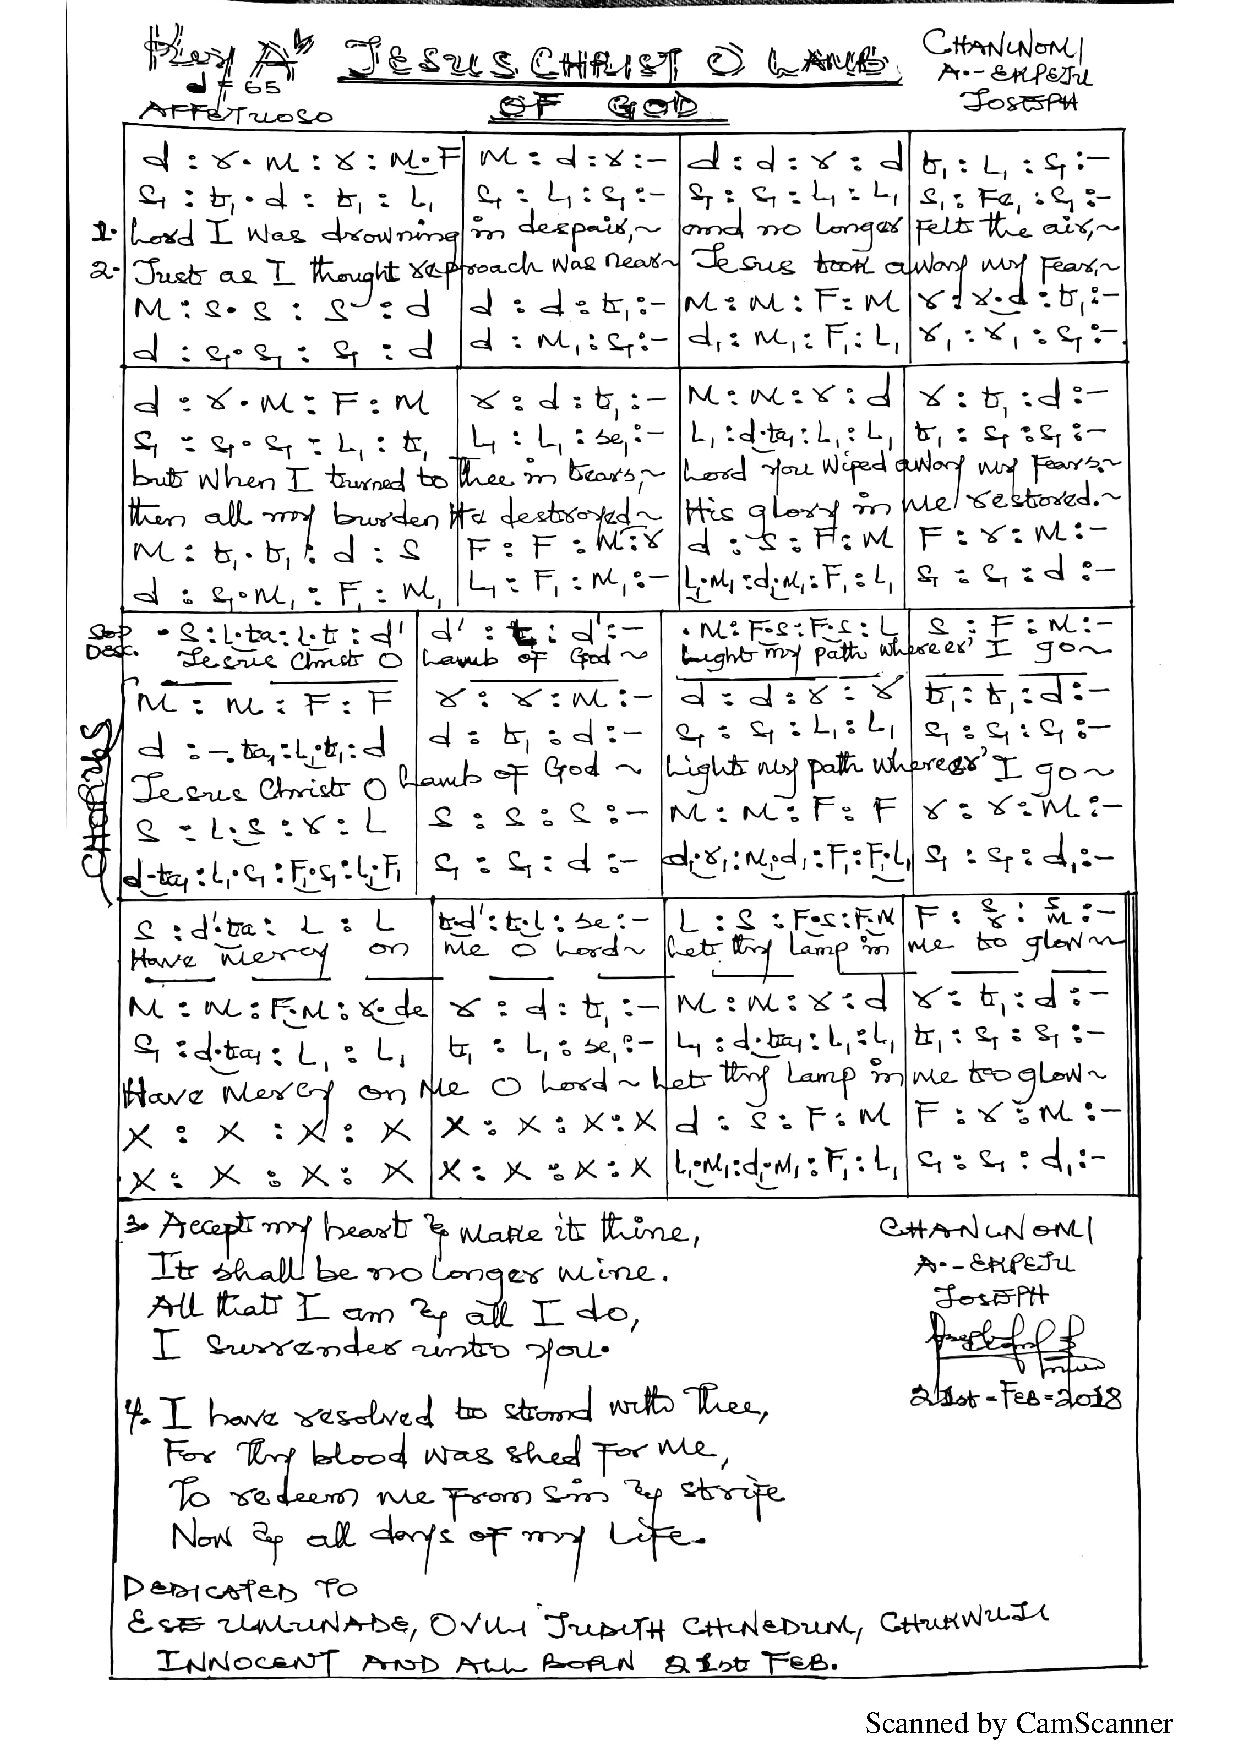 Key A♭ JESUS CHRIST O LAMB CHANUNOMI
d = 65 A.-EKPEJU
AFFETUOSO OF GOD JOSEPH
d : r . m : r : m . f | m : d : r : - | d : d : r : d | t₁ : l₁ : s₁ : -
s₁ : t₁ . d : t₁ : l₁ | s₁ : l₁ : s₁ : - | s₁ : s₁ : l₁ : l₁ | s₁ : fe₁ : s₁ : -
1. Lord I was drowning in despair, ~ and no longer felt the air, ~
2. Just as I thought reproach was near ~ Jesus took away my fear, ~
m : s . s : s : d | d : d : t₁ : - | m : m : f : m | r : r . d : t₁ : -
d : s₁ . s₁ : s₁ : d | d : m₁ : s₁ : - | d₁ : m₁ : f₁ : l₁ | r₁ : r₁ : s₁ : -
d : r . m : f : m | r : d : t₁ : - | m : m : r : d | r : t₁ : d : -
s₁ : s₁ . s₁ : l₁ : t₁ | l₁ : l₁ : se₁ : - | l₁ : d . ta₁ : l₁ : l₁ | t₁ : s₁ : s₁ : -
but when I turned to Thee in tears, ~ Lord you wiped away my fears. ~
then all my burden He destroyed ~ His glory in me restored. ~
m : t₁ . t₁ : d : s | f : f : m : r | d : s : f : m | f : r : m : -
d : s₁ . m₁ : f₁ : m₁ | l₁ : f₁ : m₁ : - | l₁ . m₁ : d₁ . m₁ : f₁ : l₁ | s₁ : s₁ : d : -
Sop Desc. . s : l . ta : l . t : d' | d' : t : d' : - | . m : f . s : f . s : l | s : f : m : -
Jesus Christ O Lamb of God ~ Light my path whereer' I go ~
CHORUS
m : m : f : f | r : r : m : - | d : d : r : r | t₁ : t₁ : d : -
d : - . ta₁ : l₁ . t₁ : d | d : t₁ : d : - | s₁ : s₁ : l₁ : l₁ | s₁ : s₁ : s₁ : -
Jesus Christ O Lamb of God ~ Light my path whereer' I go ~
s : l . s : r : l | s : s : s : - | m : m : f : f | r : r : m : -
d . ta₁ : l₁ . s₁ : f₁ . s₁ : l₁ . f₁ | s₁ : s₁ : d : - | d . r₁ : m₁ . d₁ : f₁ : f₁ . l₁ | s₁ : s₁ : d₁ : -
s : d' . ta : l : l | t . d' : t . l : se : - | l : s : f . s : f . m | f : s r : s m : -
Have mercy on me O Lord ~ Let thy lamp in me to glow ~
m : m : f . m : r . de | r : d : t₁ : - | m : m : r : d | r : t₁ : d : -
s₁ : d . ta₁ : l₁ : l₁ | t₁ : l₁ : se₁ : - | l₁ : d . ta₁ : l₁ : l₁ | t₁ : s₁ : s₁ : -
Have Mercy on Me O Lord ~ Let thy lamp in me to glow ~
X : X : X : X | X : X : X : X | d : s : f : m | f : r : m : -
X : X : X : X | X : X : X : X | l₁ . m₁ : d₁ . m₁ : f₁ : l₁ | s₁ : s₁ : d₁ : -
3. Accept my heart & make it thine,
It shall be no longer mine.
All that I am & all I do,
I surrender unto you.
CHANUNOMI
A.-EKPEJU
JOSEPH
21st-Feb-2018
4. I have resolved to stand with Thee,
For Thy blood was shed for me,
To redeem me from sin & strife
Now & all days of my life.
DEDICATED TO
ESE UMUNADE, OVUI JUDITH CHINEDUM, CHUKWUJI
INNOCENT AND ALL BORN 21st FEB.
Scanned by CamScanner